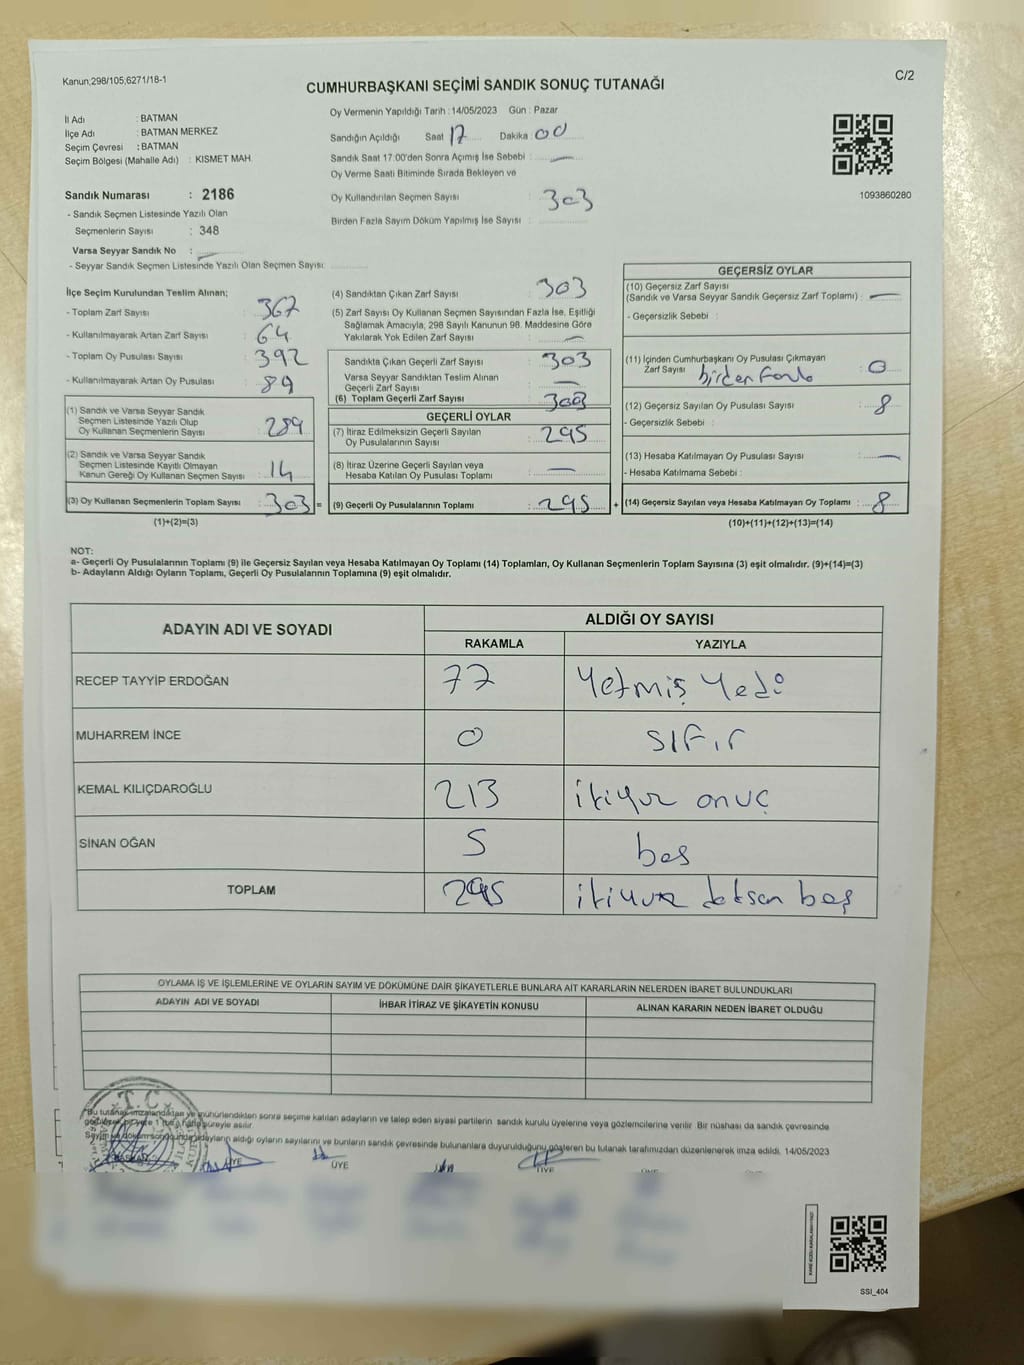 Kanun,298/105,6271/18-1
C/2
CUMHURBAŞKANI SEÇİMİ SANDIK SONUÇ TUTANAĞI
İl Adı : BATMAN
İlçe Adı : BATMAN MERKEZ
Seçim Çevresi : BATMAN
Seçim Bölgesi (Mahalle Adı) : KISMET MAH.
Oy Vermenin Yapıldığı Tarih : 14/05/2023 Gün : Pazar
Sandığın Açıldığı Saat 17 Dakika 00
Sandık Saat 17:00'den Sonra Açımış İse Sebebi : —
Oy Verme Saati Bitiminde Sırada Bekleyen ve
Oy Kullandırılan Seçmen Sayısı : 303
Birden Fazla Sayım Döküm Yapılmış İse Sayısı :
1093860280
Sandık Numarası : 2186
- Sandık Seçmen Listesinde Yazılı Olan
Seçmenlerin Sayısı : 348
Varsa Seyyar Sandık No : —
- Seyyar Sandık Seçmen Listesinde Yazılı Olan Seçmen Sayısı:
İlçe Seçim Kurulundan Teslim Alınan;
- Toplam Zarf Sayısı : 367
- Kullanılmayarak Artan Zarf Sayısı : 64
- Toplam Oy Pusulası Sayısı : 392
- Kullanılmayarak Artan Oy Pusulası : 89
(1) Sandık ve Varsa Seyyar Sandık
Seçmen Listesinde Yazılı Olup
Oy Kullanan Seçmenlerin Sayısı : 289
(2) Sandık ve Varsa Seyyar Sandık
Seçmen Listesinde Kayıtlı Olmayan
Kanun Gereği Oy Kullanan Seçmen Sayısı : 14
(3) Oy Kullanan Seçmenlerin Toplam Sayısı : 303 =
(1)+(2)=(3)
(4) Sandıktan Çıkan Zarf Sayısı : 303
(5) Zarf Sayısı Oy Kullanan Seçmen Sayısından Fazla İse, Eşitliği
Sağlamak Amacıyla, 298 Sayılı Kanunun 98. Maddesine Göre
Yakılarak Yok Edilen Zarf Sayısı : —
Sandıkta Çıkan Geçerli Zarf Sayısı : 303
Varsa Seyyar Sandıktan Teslim Alınan
Geçerli Zarf Sayısı : —
(6) Toplam Geçerli Zarf Sayısı : 303
GEÇERLİ OYLAR
(7) İtiraz Edilmeksizin Geçerli Sayılan
Oy Pusulalarının Sayısı : 295
(8) İtiraz Üzerine Geçerli Sayılan veya
Hesaba Katılan Oy Pusulası Toplamı : —
(9) Geçerli Oy Pusulalarının Toplamı : 295 +
GEÇERSİZ OYLAR
(10) Geçersiz Zarf Sayısı
(Sandık ve Varsa Seyyar Sandık Geçersiz Zarf Toplamı) : —
- Geçersizlik Sebebi :
(11) İçinden Cumhurbaşkanı Oy Pusulası Çıkmayan
Zarf Sayısı : 0
birden fazla
(12) Geçersiz Sayılan Oy Pusulası Sayısı : 8
- Geçersizlik Sebebi :
(13) Hesaba Katılmayan Oy Pusulası Sayısı : —
- Hesaba Katılmama Sebebi :
(14) Geçersiz Sayılan veya Hesaba Katılmayan Oy Toplamı : 8
(10)+(11)+(12)+(13)=(14)
NOT:
a- Geçerli Oy Pusulalarının Toplamı (9) ile Geçersiz Sayılan veya Hesaba Katılmayan Oy Toplamı (14) Toplamları, Oy Kullanan Seçmenlerin Toplam Sayısına (3) eşit olmalıdır. (9)+(14)=(3)
b- Adayların Aldığı Oyların Toplamı, Geçerli Oy Pusulalarının Toplamına (9) eşit olmalıdır.
ADAYIN ADI VE SOYADI ALDIĞI OY SAYISI
RAKAMLA YAZIYLA
RECEP TAYYİP ERDOĞAN 77 Yetmiş Yedi
MUHARREM İNCE 0 sıfır
KEMAL KILIÇDAROĞLU 213 ikiyüz onüç
SİNAN OĞAN 5 beş
TOPLAM 295 ikiyüz doksan beş
OYLAMA İŞ VE İŞLEMLERİNE VE OYLARIN SAYIM VE DÖKÜMÜNE DAİR ŞİKAYETLERLE BUNLARA AİT KARARLARIN NELERDEN İBARET BULUNDUKLARI
ADAYIN ADI VE SOYADI İHBAR İTİRAZ VE ŞİKAYETİN KONUSU ALINAN KARARIN NEDEN İBARET OLDUĞU
T.C
*Bu tutanak imzalandıktan ve mühürlendikten sonra seçime katılan adayların ve talep eden siyasi partilerin sandık kurulu üyelerine veya gözlemcilerine verilir. Bir nüshası da sandık çevresinde
süreyle asılır.
Sayım ve döküm sonucunda adayların aldığı oyların sayılarını ve bunların sandık çevresinde bulunanlara duyurulduğunu gösteren bu tutanak tarafımızdan düzenlenerek imza edildi. 14/05/2023
BAŞKAN ÜYE ÜYE ÜYE
SSI_404